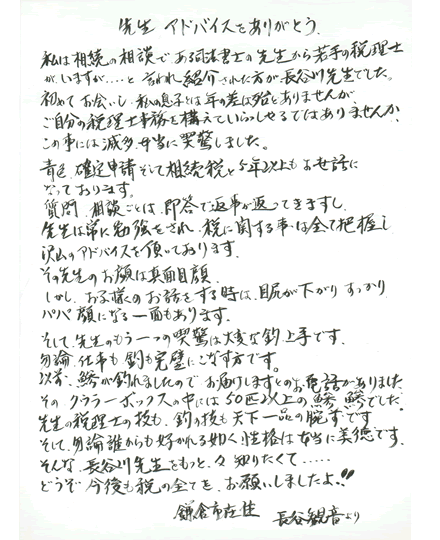 先生 アドバイスをありがとう.
私は相続の相談である司法書士の先生から若手の税理士
がいますが‥‥と言われ紹介された方が長谷川先生でした。
初めてお会いし、私の息子とは年の差は殆とありませんが、
ご自分の税理士事務を構えていらっしゃるではありませんか、
この事には滅多、本当に驚しました。
青色、確定申告そして相続税と5年以上もお世話に
なっております。
質問、相談ごとは、即答で返事が返ってきますし、
先生は常に勉強をされ、税に関する事は全て把握し
沢山のアドバイスを頂いております.
その先生のお顔は真面目顔.
しかし、お子様のお話をする時は、目尻が下がり すっかり
パパ顔になる一面もあります.
そして、先生のもう一つの驚は大変な釣上手です.
勿論、仕事も釣も完璧にこなす方です.
以前、鯵が釣れましたので お届けしますとのお電話がありました
その クーラーボックスの中には50匹以上の鯵、鯵でした.
先生の税理士の技も、釣の技も天下一品の腕ずです
そして、勿論誰からも好かれる如く性格は本当に美徳です.
そんな、長谷川先生をもっと、々 知りたくて‥‥‥
どうぞ 今後も税の全てを、お願いしましたよ.!!
鎌倉市在住 長谷観音より